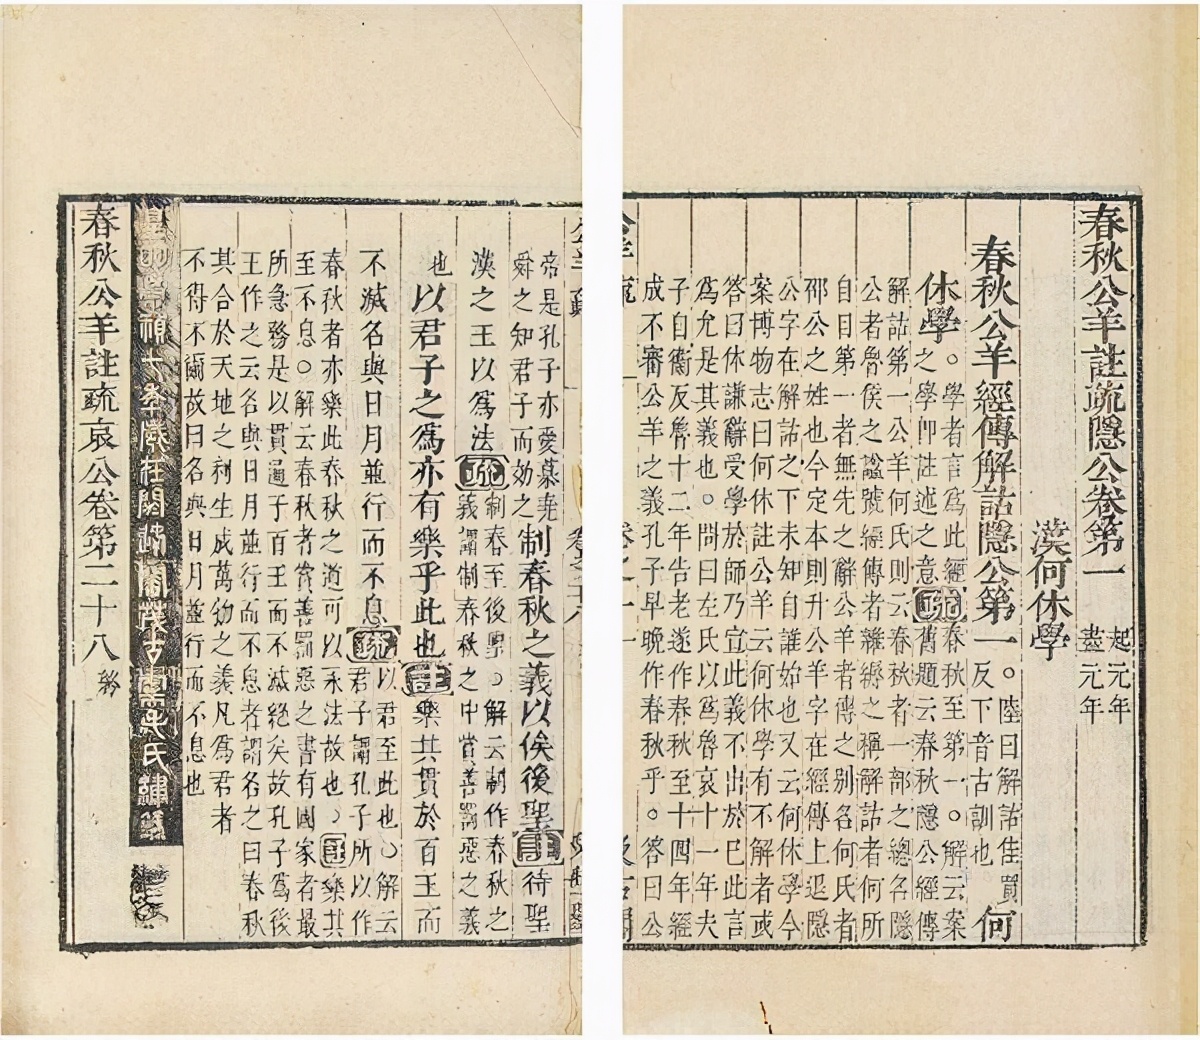 春秋公羊註疏隱公卷第一 起元年
盡元年
漢何休學
春秋公羊經傳解詁隱公第一。陸曰解詁佳買
反下音古訓也。何
休學。學者言爲此經
之學卽註述之意疏春秋至第一。解云案
舊題云春秋隱公經傳
解詁第一公羊何氏則云春秋者一部之總名隱
公者魯侯之諡號經傳者雜縟之稱解詁者何所
自目第一者無先之辭公羊者傳之別名何氏者
邵公之姓也今定本則升公羊字在經傳上退隱
公字在解詁之下未知自誰始也又云何休學今
案博物志曰何休註公羊云何休學有不解者或
答曰休謙辭受學於師乃宣此義不出於已此言
爲允是其義也。問曰左氏以爲魯哀十一年夫
子自衞反魯十二年告老遂作春秋至十四年經
成不審公羊之義孔子早晚作春秋乎。答曰公
帝是孔子亦愛慕堯
舜之知君子而効之制春秋之義以俟後聖註待聖
漢之王以爲法疏制春至後聖。解云制作春秋之
義謂制春秋之中賞善罰惡之義
也以君子之爲亦有樂乎此也註樂其貫於百王而
不滅名與日月並行而不息疏以君至此也。解云
君子謂孔子所以作
春秋者亦樂此春秋之道可以永法故也。註樂其
至不息。解云春秋者賞善罰惡之書有國家者最
所急務是以貫通于百王而不滅絕矣故孔子爲後
王作之云名與日月並行而不息者謂名之曰春秋
其合於天地之利生成萬物之義凡爲君者
不得不爾故曰名與日月並行而不息也
皇明崇禎七年歲在閼逢閹茂古虞毛氏繡鐫
春秋公羊註疏哀公卷第二十八 終